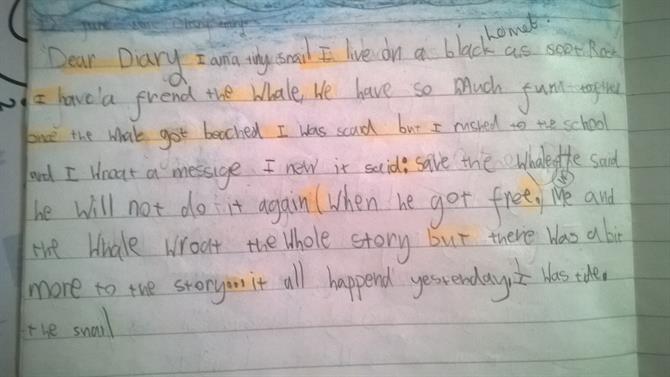 homet.
Dear Diary I am a tiny snail I live on a black as soot Rock
I have a frend the Whale, We have so Much funn together
once the whale got beeched I was scard but I rushed to the school
and I Wroat a message I new it said: save the whale He said
he will not do it again (When he got free. Me and
the Whale Wroat the Whole story but there Was a bit
more to the story... it all happend yesterday. I Was tide.
the snail